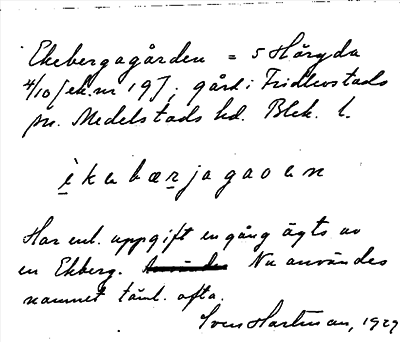 Ekebergagården = 5 Håryda
4/10 [ek. nr 19]; gård i Fridlevstads
sn. Medelstads hd. Blek. l.
è k e b æ r j a g a o e n
Har enl. uppgift en gång ägts av
en Ekberg. Nu användes
namnet täml. ofta.
Sven Hartman, 1929